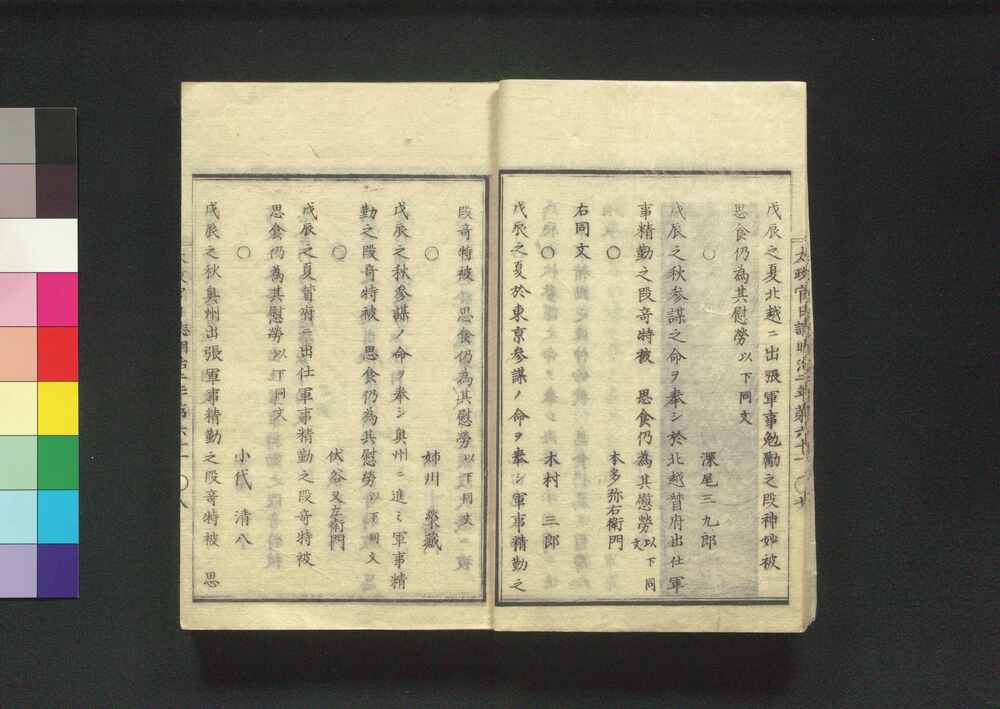 戊辰之夏北越ニ出張軍事勉勵之段神妙被
思食仍為其慰勞以下同文
○ 深尾三九郎
戊辰之秋参謀之命ヲ奉シ於北越督府出仕軍
事精勤之段奇特被 思食仍為其慰勞以下同文
○ 本多弥右衛門
右同文
○ 木村三郎
戊辰之夏於東京参謀ノ命ヲ奉シ軍事精勤之
段奇特被 思食仍為其慰勞以下同文
○ 姉川榮藏
戊辰之秋参謀ノ命ヲ奉シ奥州ニ進ミ軍事精
勤之段奇特被 思食仍為其慰勞以下同文
○ 伏谷又左衛門
戊辰之夏督府ニ出仕軍事精勤之段奇特被
思食仍為其慰勞以下同文
○ 小代清八
戊辰之秋奥州出張軍事精勤之段奇特被 思